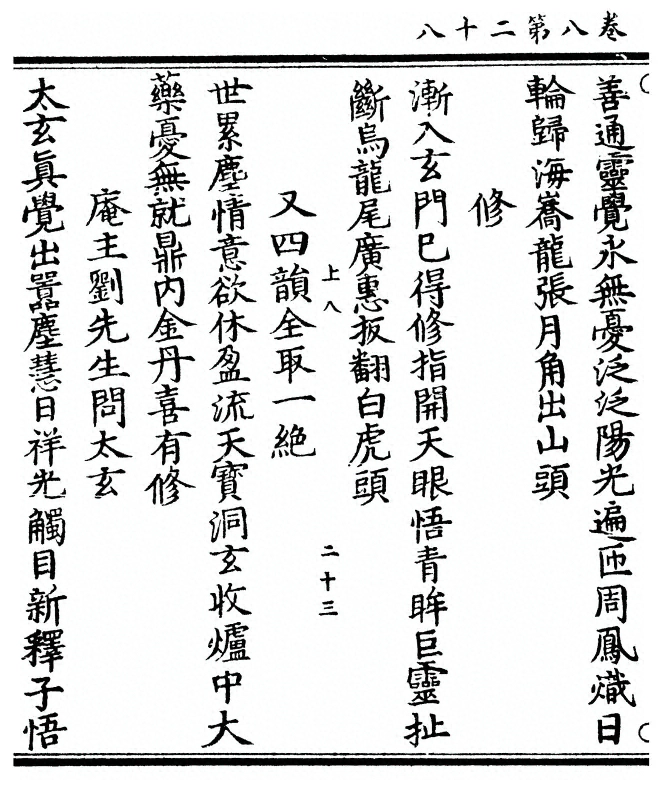 卷八第二十八
善通靈覺永無憂泛泛陽光遍匝周鳳熾日
輪歸海嶠龍張月角出山頭
修
漸入玄門巳得修指開天眼悟青眸巨靈扯
斷烏龍尾廣惠扳翻白虎頭
上八
二十三
又四韻全取一絶
世累塵情意欲休盈流天寶洞玄收爐中大
藥憂無就鼎內金丹喜有修
庵主劉先生問太玄
太玄眞覺出囂塵慧日祥光觸目新釋子悟